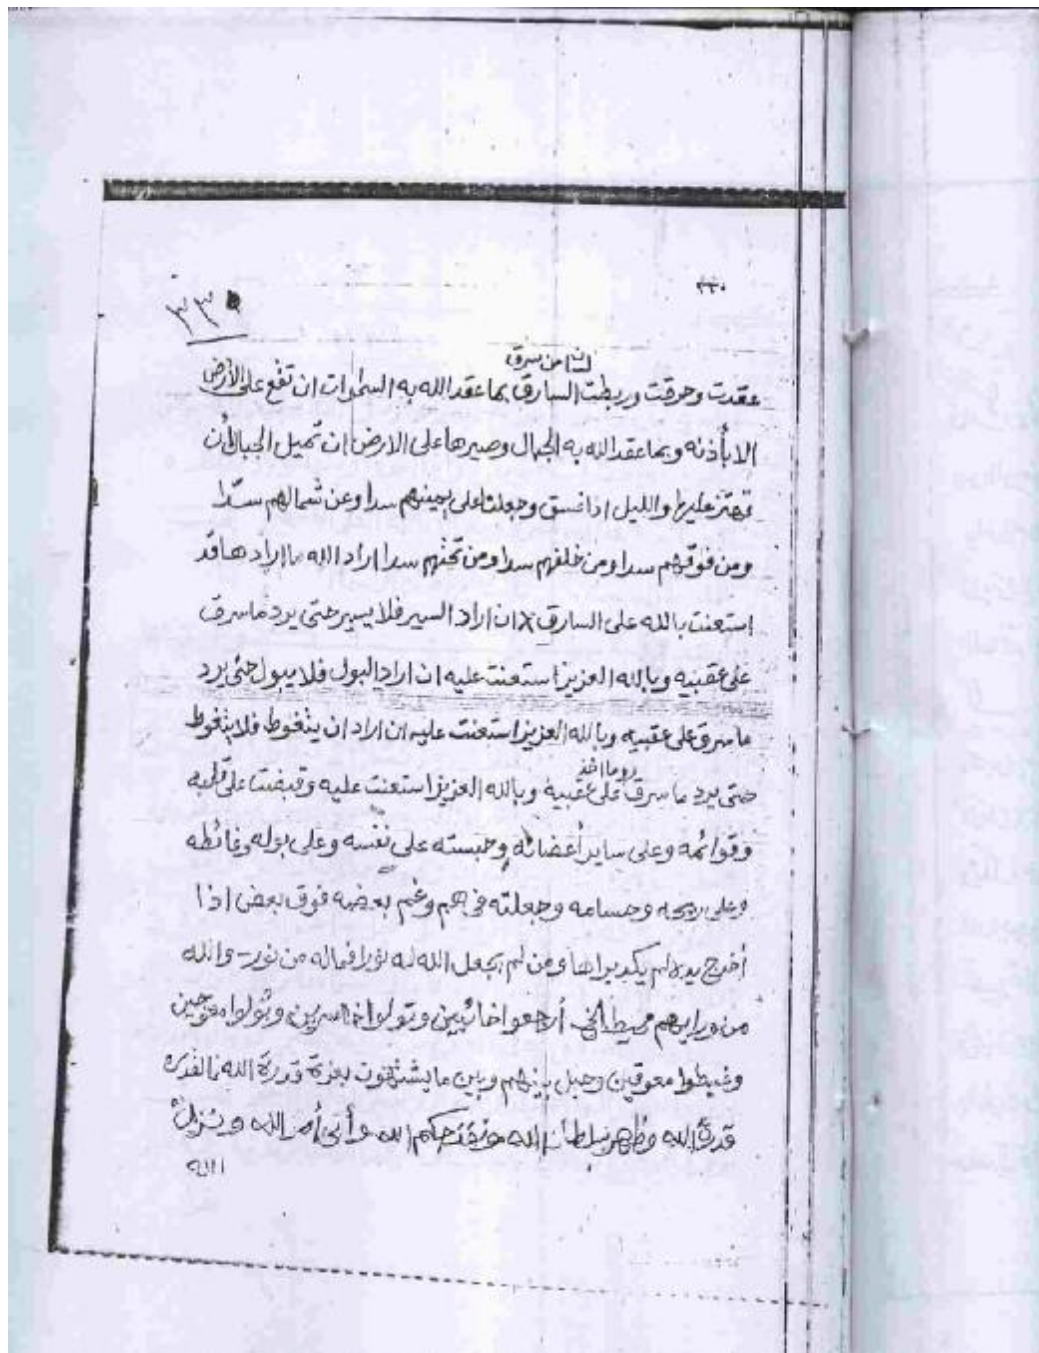 ٣٣٠
٣٣٠
من سرق
عقدت وحرقت وربطت السارق بما عقد الله به السموات ان تقع على الأرض
الا بأذنه وبما عقد الله به الجبال وصيرها على الارض ان تميل الجبال أن
تهتز عليها والليل اذا غسق وجعلت على يمينهم سدا وعن شمالهم سدّا
ومن فوقهم سدا ومن خلفهم سدا ومن تحتهم سدا اراد الله ما اراد ها قد
استعنت بالله على السارق ان اراد السير فلا يسير حتى يرد ما سرق
على عقبيه وبالله العزيز استعنت عليه ان اراد البول فلا يبول حتى يرد
ما سرق على عقبيه وبالله العزيز استعنت عليه ان اراد ان يتغوط فلا يتغوط
وما اخذ
حتى يرد ما سرق على عقبيه وبالله العزيز استعنت عليه وقبضت على قلبه
وقوائمه وعلى ساير أعضائه وحبسته على نفسه وعلى بوله وغائطه
وعلى ريحه وجعلته في هم وغم بعضه فوق بعض اذا
أخرج يده لم يكد يراها ومن لم يجعل الله له نورا فماله من نور والله
من ورايهم محيط أرجعوا خائبين وتولوا خاسرين وتولوا
معوقين وحيل بينهم وبين ما يشتهون بعزة قدرة الله فالقدره
قدرة الله وظهر سلطان الله حكم الله وأتى أمر الله ونزل
الله